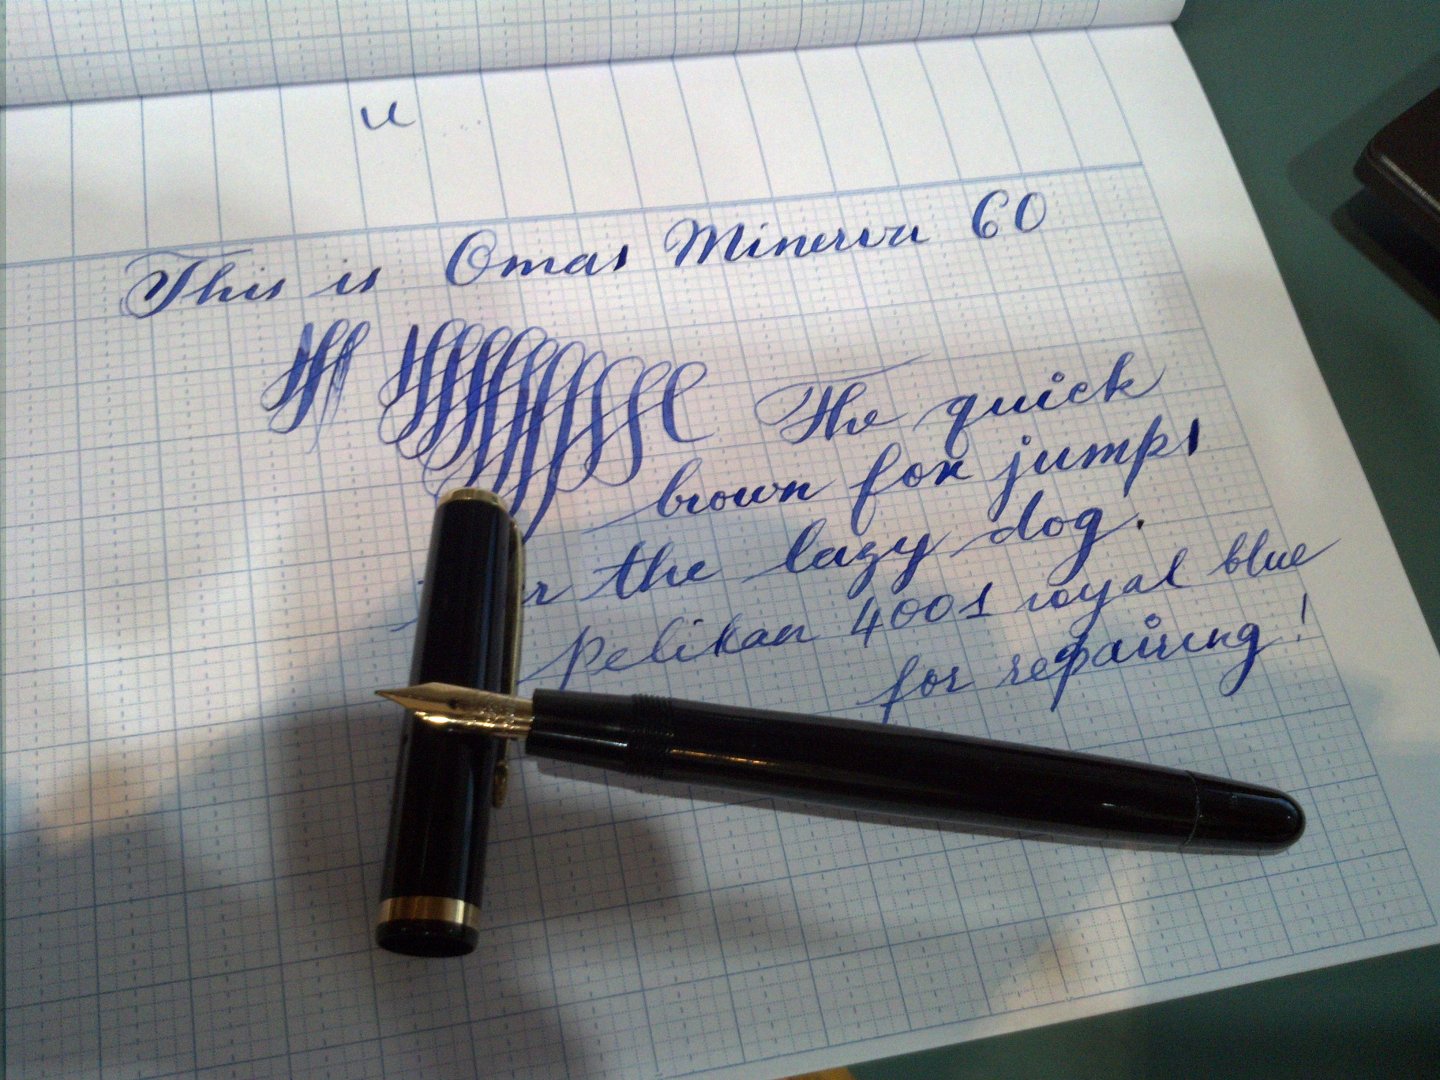 u
This is Omas Minerva 60
The quick
brown fox jumps
r the lazy dog.
Pelikan 4001 royal blue
for repairing!